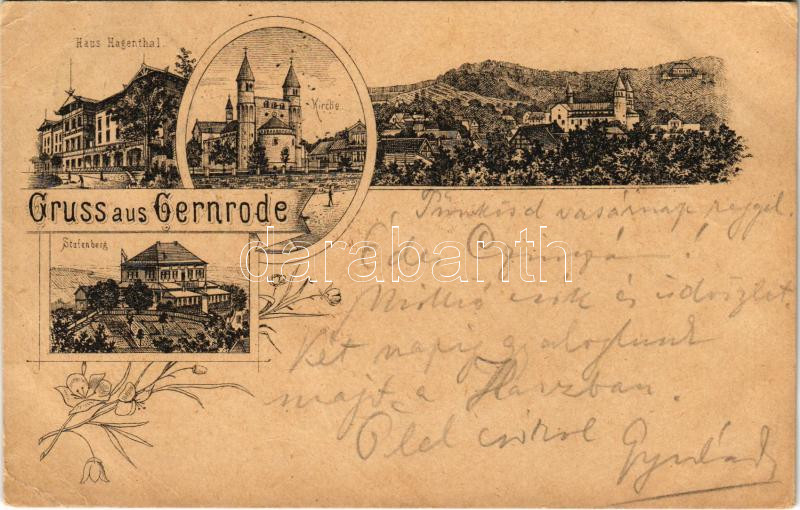 Haus Hagenthal.
Kirche
Gruss aus Gernrode
Stufenberg
Pünkösd vasárnap reggel.
Édes
Millió csók és üdvözlet.
Két napig gyalogltunk
majd a Harzban.
Ölel csókol
darabanth.com